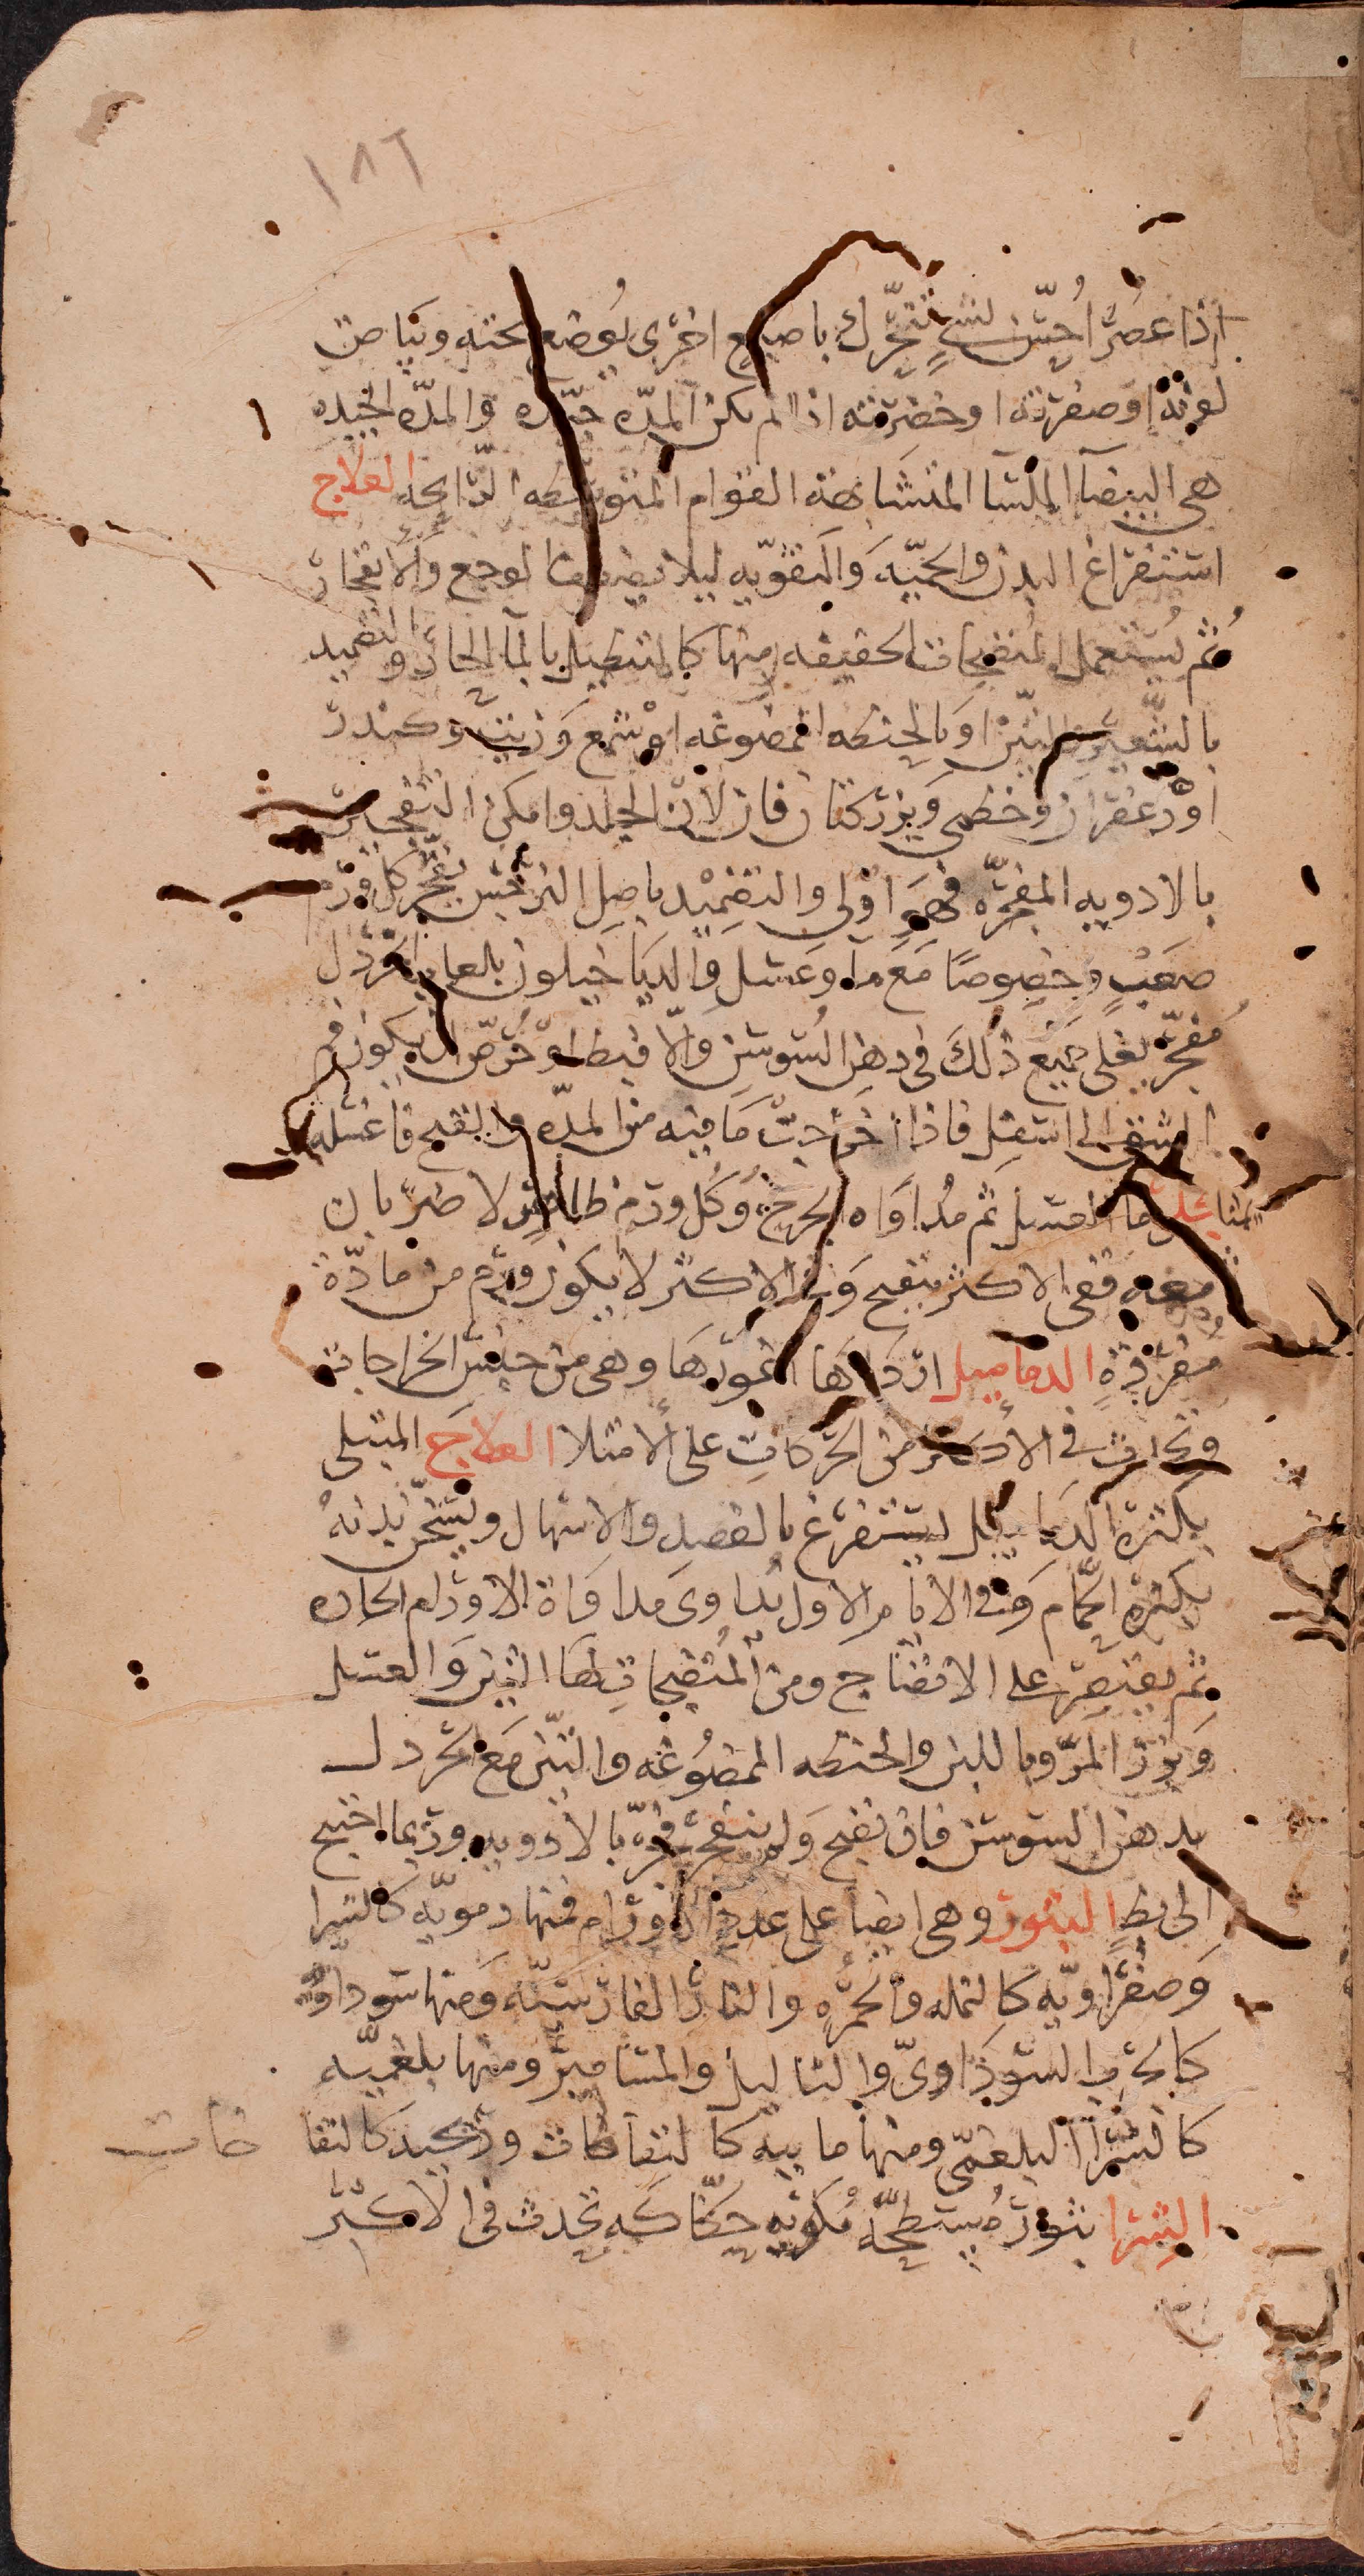 ١٨٦
اذا عصر احس لشي تتحرك باصبع اخرى لوضع تحته وبياض
لونه او صفرته او خضرته اذا لم يكن المده جيده والمده الجيده
هى البيضا الملسا المتشابهه القوام المتوسطه الرايحه العلاج
استفراغ البدن والحميه والتقويه ليلا الوجع والانفجار
ثم يستعمل المنضجات الحقيقه منها كالتنطيل بالما الحار والتضميد
بالشعير والتين او بالحنطه الممضوغه او شمع وزيت وكندر
او زعفران وخطمى وبزر كتان فان لان الجلد وامكن التفجير
بالادويه المفجره فهو اولى والتضميد باصل النرجس يفجر كل ورم
صعب وخصوصا مع ماء وعسل والدياخيلون بلعاب الخردل
مفجر لعلى جميع ذلك فى دهن السوسن والا فبط وحرص ان يكون فم
الشق الى اسفل فاذا اخرجت ما فيه من المده والقيح فاغسله
بما العسل ثم مداواه الجرح وكل ورم ظاهر لا ضربان
معه ففى الاكثر ينقيح وفى الاكثر لا يكون ورم من مادة
مفردة الدماميل ارداها اغورها وهى من جنس الخراجات
وتحدث فى الاكثر من الحركات على الامتلا العلاج المبتلى
بكثرة الدماميل يستفرغ بالفصد والاسهال ويسخن بدنه
بكثرة الحمام وفى الايام الاول يداوى مداواة الاورام الحاره
ثم يقتصر على الانضاج ومن المنضجات لها التين والعسل
وبزر المر وباللبن والحنطه الممضوغه والتين مع الخردل
بدهن السوسن فان نضج ولم ينفجر فجره بالادويه وربما احتيج
الى بط البثور وهى ايضا على عدد الاورام فمنها دمويه كالشرا
وصفراويه كالنمله والجمره والنار الفارسيه ومنها سوداويه
كالجرب السوداوى والثاليل والمسامير ومنها بلغميه
كالشرا البلغمى ومنها مابيه كالنفاطات وريحيه كالنفاخات
الشرا بثور مسطحه مكونه حكاكه تحدث فى الاكثر